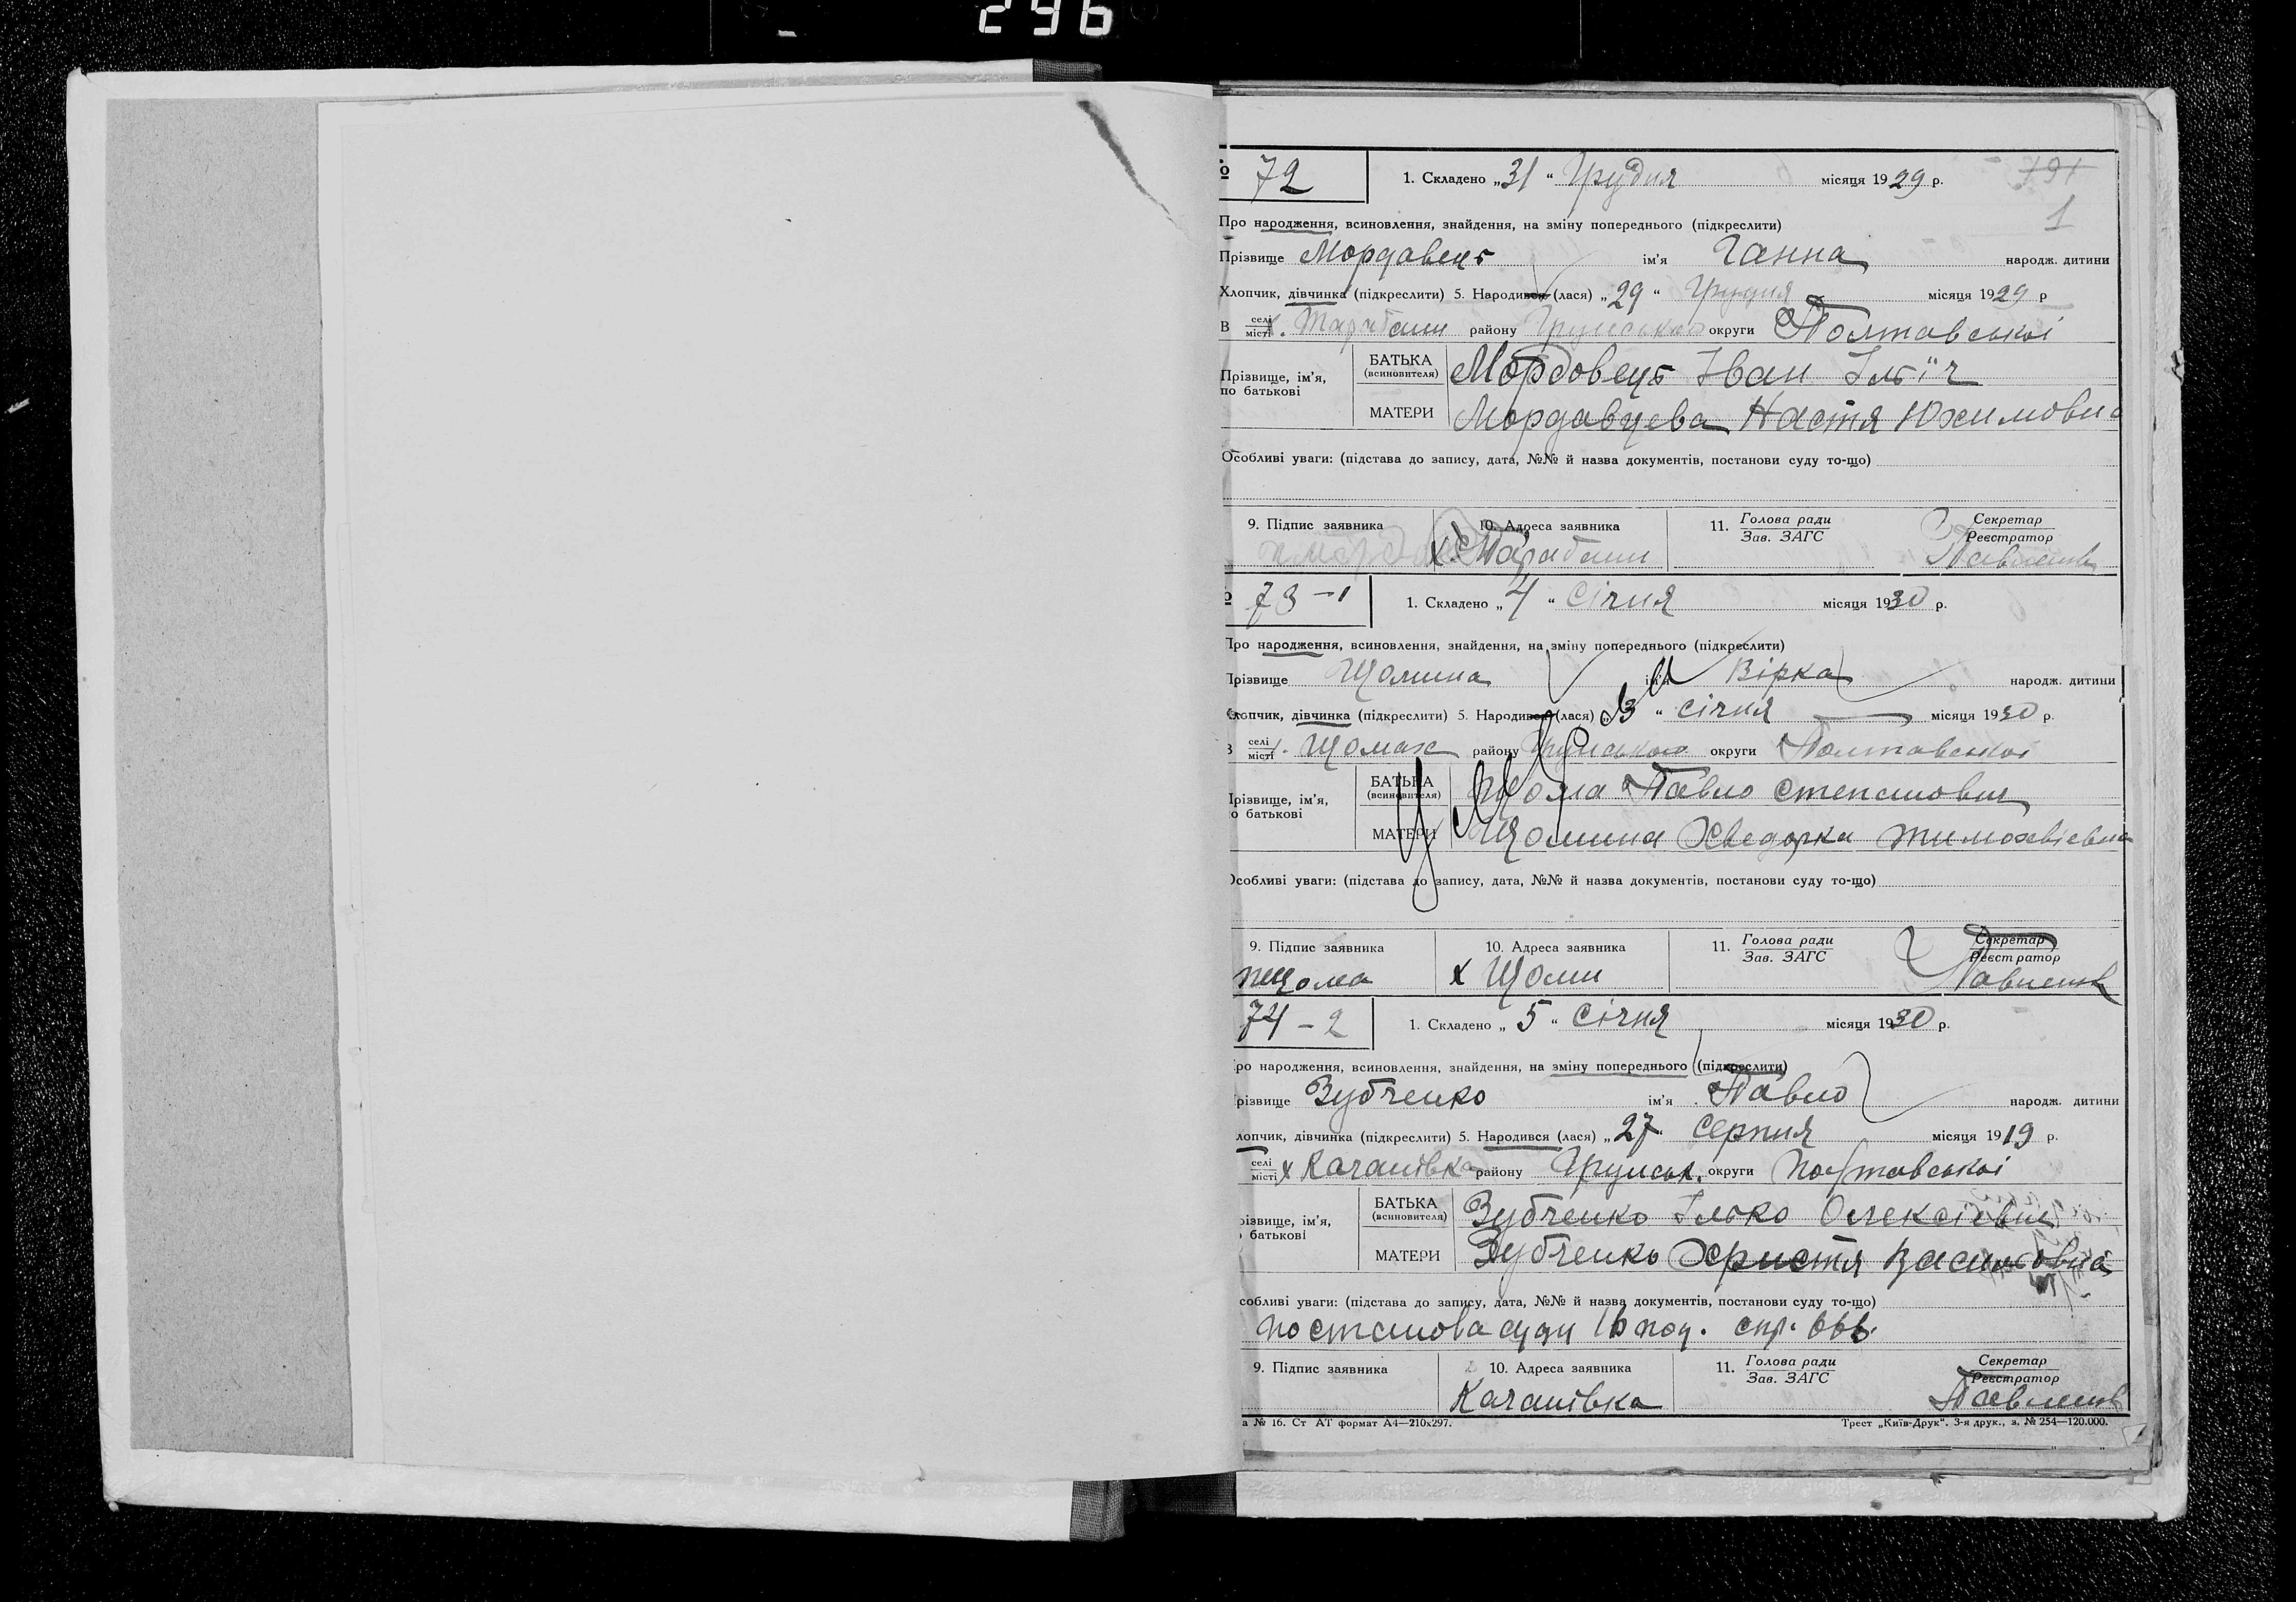 296
№ 72 1. Складено „31“ Грудня місяця 1929 р. 791
1
Про народження, всиновлення, знайдення, на зміну попереднього (підкреслити)
Прізвище Мордавець ім'я Ганна народж. дитини
Хлопчик, дівчинка (підкреслити) 5. Народився (лася) „29“ Грудня місяця 1929 р
В селі місті х. району Грунського округи Полтавської
Прізвище, ім'я, по батькові
БАТЬКА (всиновителя) Мордовець Іван Ількіч
МАТЕРИ Мордавцева Настя Юхимовна
Особливі уваги: (підстава до запису, дата, №№ й назва документів, постанови суду то-що)
9. Підпис заявника 10. Адреса заявника 11. Голова ради Зав. ЗАГС Секретар Реєстратор
х.
73-1 1. Складено „4“ Січня місяця 1930 р.
Про народження, всиновлення, знайдення, на зміну попереднього (підкреслити)
Прізвище Щомина ім'я Вірка народж. дитини
Хлопчик, дівчинка (підкреслити) 5. Народився (лася) „3“ січня місяця 1930 р.
В селі місті х. Щомах району Грунського округи Полтавської
Прізвище, ім'я, по батькові
БАТЬКА (всиновителя) Щома Павло Степанович
МАТЕРИ Щомина Хведорка Тимохвієвна
Особливі уваги: (підстава до запису, дата, №№ й назва документів, постанови суду то-що)
9. Підпис заявника 10. Адреса заявника 11. Голова ради Зав. ЗАГС Секретар Реєстратор
пЩома х Щоми Павленко
74-2 1. Складено „5“ Січня місяця 1930 р.
ро народження, всиновлення, знайдення, на зміну попереднього (підкреслити)
різвище Зубченко ім'я Павло народж. дитини
лопчик, дівчинка (підкреслити) 5. Народився (лася) „27“ Серпня місяця 1919 р.
селі місті х Качанівка району Грунськ. округи Полтавської
різвище, ім'я, батькові
БАТЬКА (всиновителя) Зубченко Ілько Олексієвич
МАТЕРИ Зубченко Христя Василовна
собливі уваги: (підстава до запису, дата, №№ й назва документів, постанови суду то-що)
постанова суду спр. 666.
9. Підпис заявника 10. Адреса заявника 11. Голова ради Зав. ЗАГС Секретар Реєстратор
Качанівка Павленко
а № 16. Ст АТ формат А4—210х297. Трест „Київ-Друк“. 3-я друк., з. № 254—120.000.